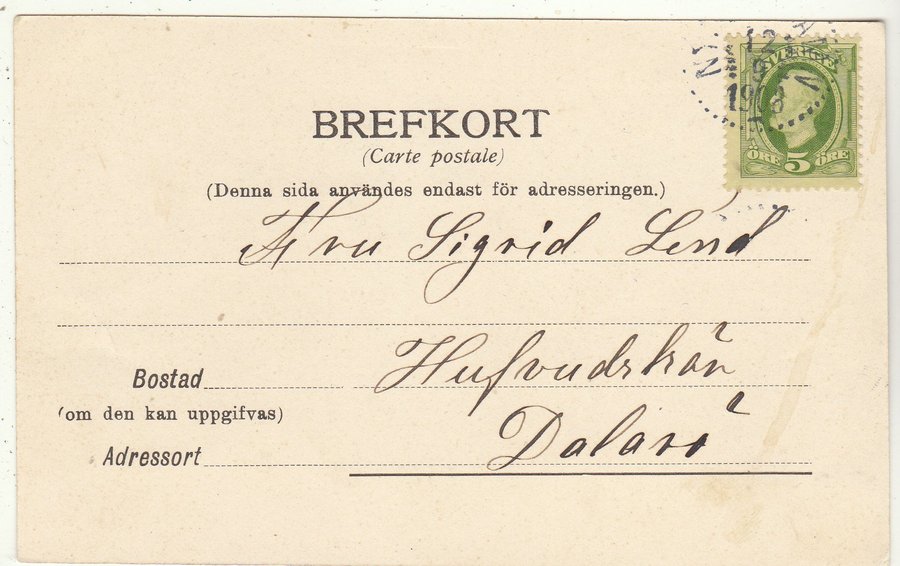 BREFKORT
(Carte postale)
(Denna sida användes endast för adresseringen.)
SVERIGE
ÖRE 5 ÖRE
12
Fru Sigrid Lend
Hufvudskär
Bostad
(om den kan uppgifvas)
Dalarö
Adressort